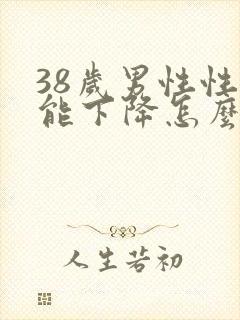 38歲男性性
能下降怎麼
人生若初